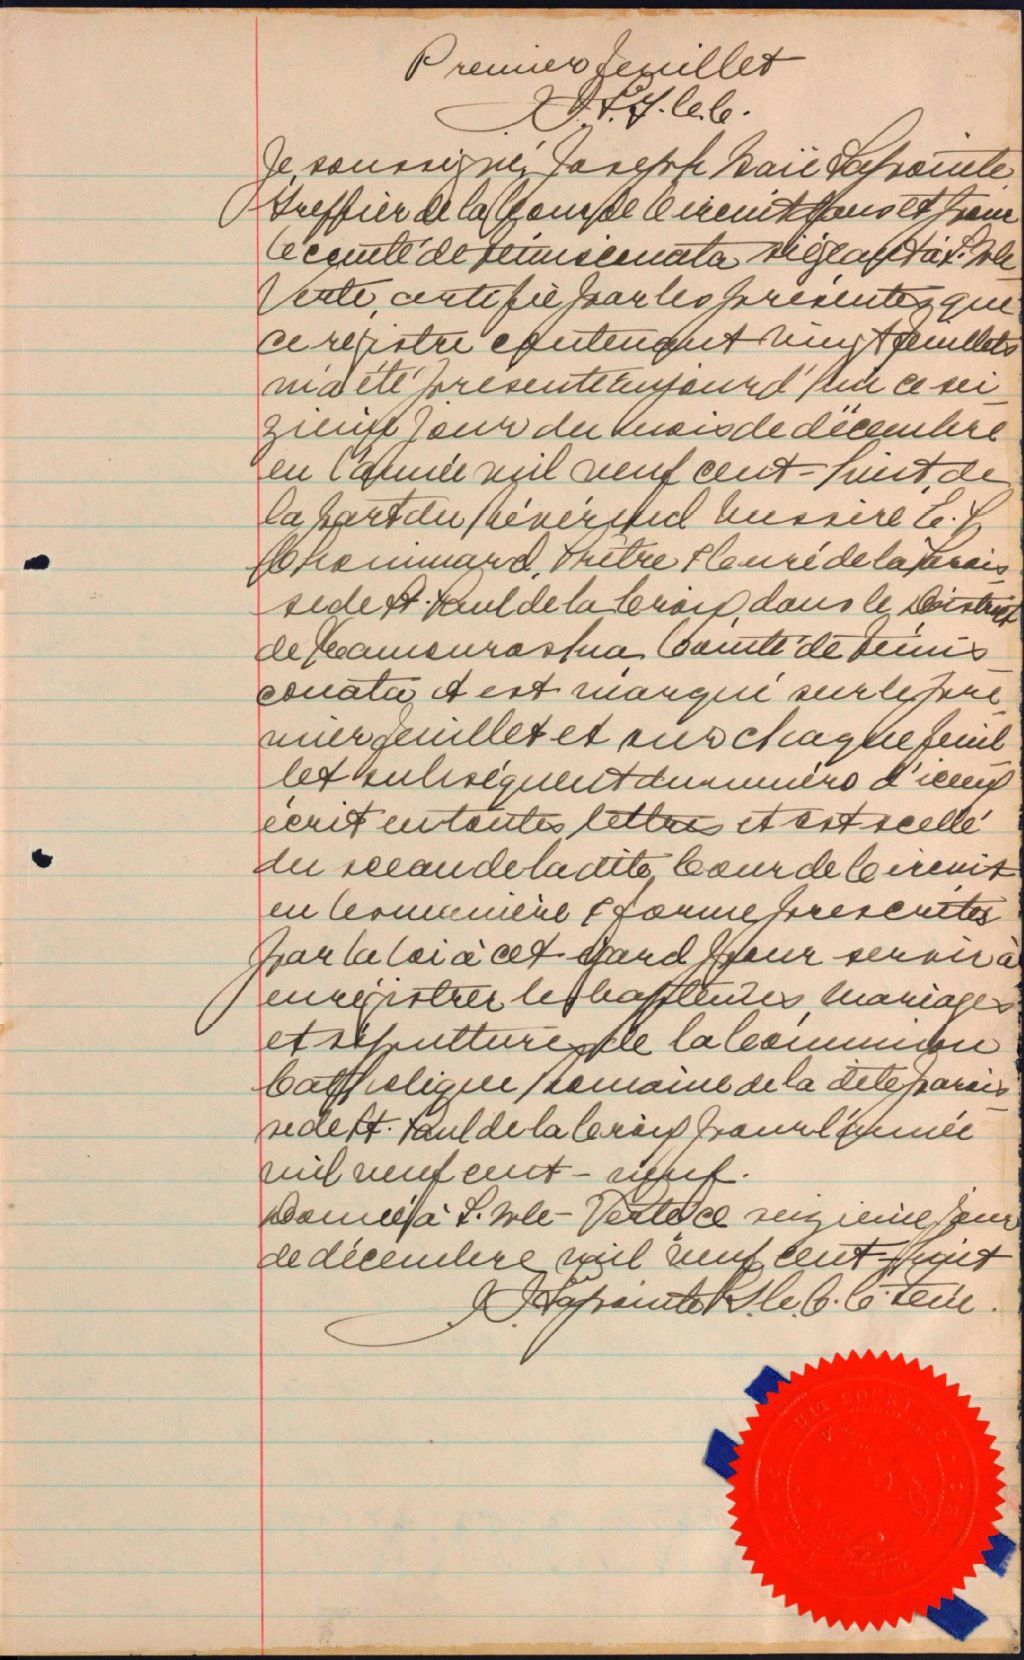 Premier feuillet
J. I. L. G. C. C.
Je, soussigné, Joseph Isaïe Lapointe
Greffier de la Cour de Circuit dans et pour
le comté de Témiscouata siégeant à L'Isle
Verte, certifie par les présentes que
ce registre contenant vingt feuillets
m'a été présenté aujourd'hui ce sei
zième jour du mois de décembre
en l'année mil neuf cent-huit de
la part du Révérend Messire
Chouinard, Prêtre & Curé de la Parois
se de St. Paul de la Croix, dans le District
de Kamouraska Comté de Témis
couata, et est marqué sur le pre
mier feuillet et sur chaque feuil
let subséquent du numéro d'iceux
écrit en toutes lettres et est scellé
du sceau de la dite Cour de Circuit
en les manière & forme prescrites
par la loi à cet égard pour servir à
enregistrer les baptêmes, mariages
et sépultures de la Communion
Catholique Romaine de la dite parois
se de St. Paul de la Croix pour l'année
mil neuf cent-neuf.
Donné à L'Isle-Verte ce seizième jour
de décembre mil neuf cent-huit
Lapointe G. C. C. C. Tém.